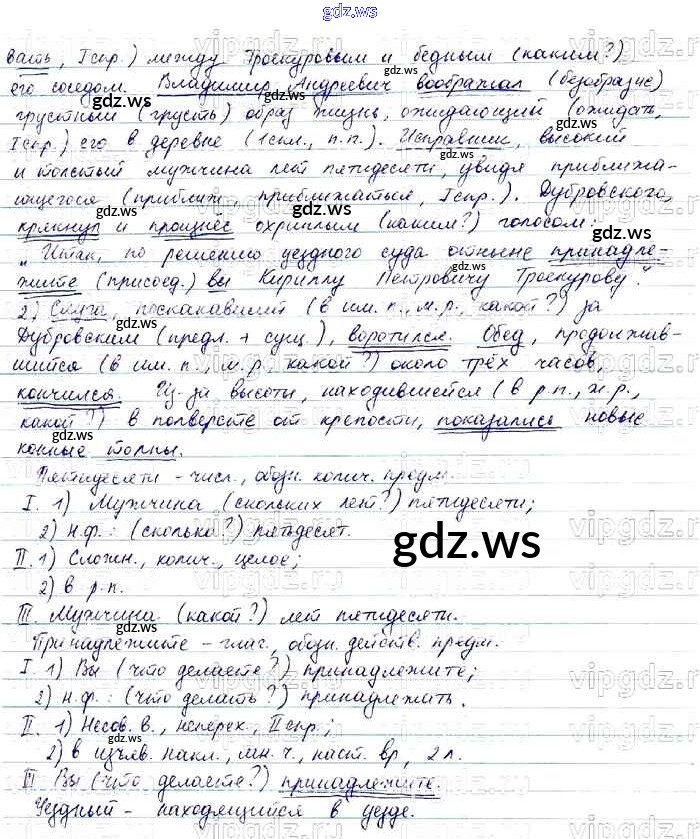 gdz.ws
вать, I спр.) между Троекуровым и бедным (каким?)
его соседом. Владимир Андреевич воображал (безобразие)
грустный (грусть) образ жизнь, ожидающий (ожидать,
I спр.) его в деревне (1 скл., п.п.). Исправник, высокий
и толстый мужчина лет пятидесяти, увидя приближа-
ющегося (приближ, приближаться, I спр.). Дубровского,
крякнул и произнёс охриплым (каким?) голосом:
„Итак, по решению уездного суда отныне принадле-
жите (присоед.) вы Кириллу Петровичу Троекурову".
2) Слуга, поскакавший (в им. п., м.р., какой?) за
Дубровским (предл. + сущ.), воротился. Обед, продолжив-
шийся (в им. п., м.р., какой?) около трёх часов,
кончился. Из-за высоты, находившейся (в р.п., ж.р.,
какой?) в полверсте от крепости, показались новые
конные толпы.
Пятидесяти - числ., обозн. колич. предм.
I. 1) Мужчина (скольких лет?) пятидесяти;
2) н.ф.: (сколько?) пятьдесят.
II. 1) Сложн., колич., целое;
2) в р.п.
III. Мужчина (какой?) лет пятидесяти.
Принадлежите - глаг., обозн. действ. предм.
I. 1) Вы (что делаете?) принадлежите;
2) н.ф.: (что делать?) принадлежать.
II. 1) Несов. в., неперех., II спр.;
2) в изъяв. накл., мн. ч., наст. вр., 2 л.
III Вы (что делаете?) принадлежите.
Уездный - находящийся в уезде.